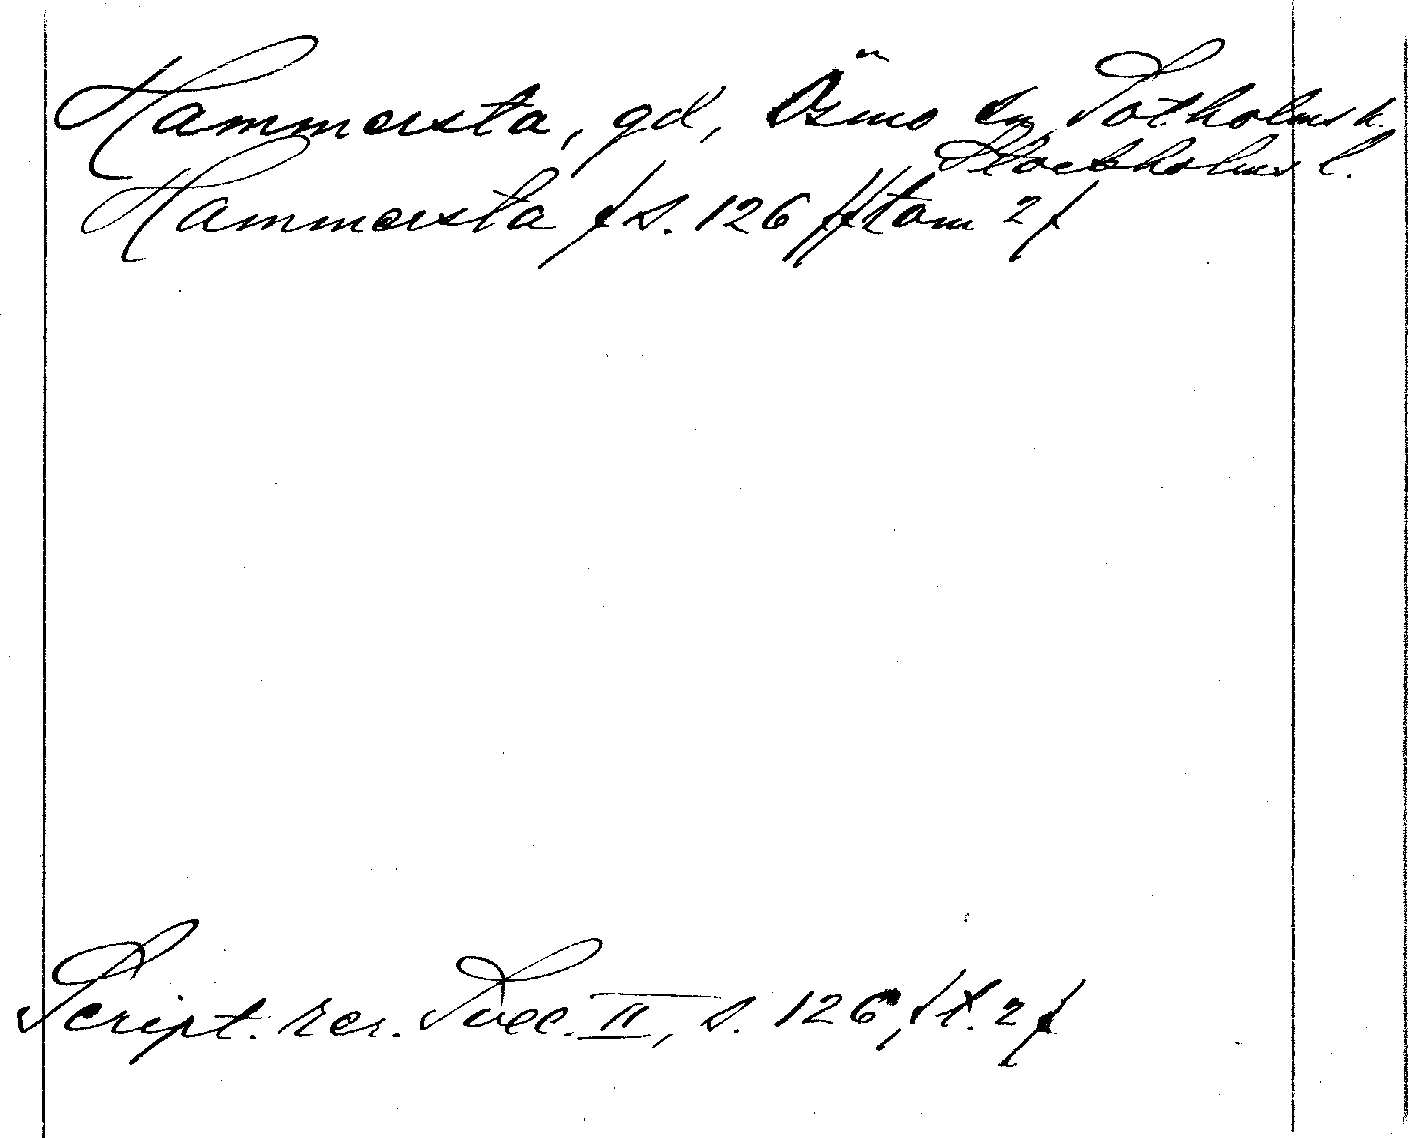 Hammersta, gd, Ösmo sn, Sotholms h.
Stockholms l.
Hammersta /s. 126/ /tom 2/
Script. rer. Svec. II, s. 126, /t. 2/